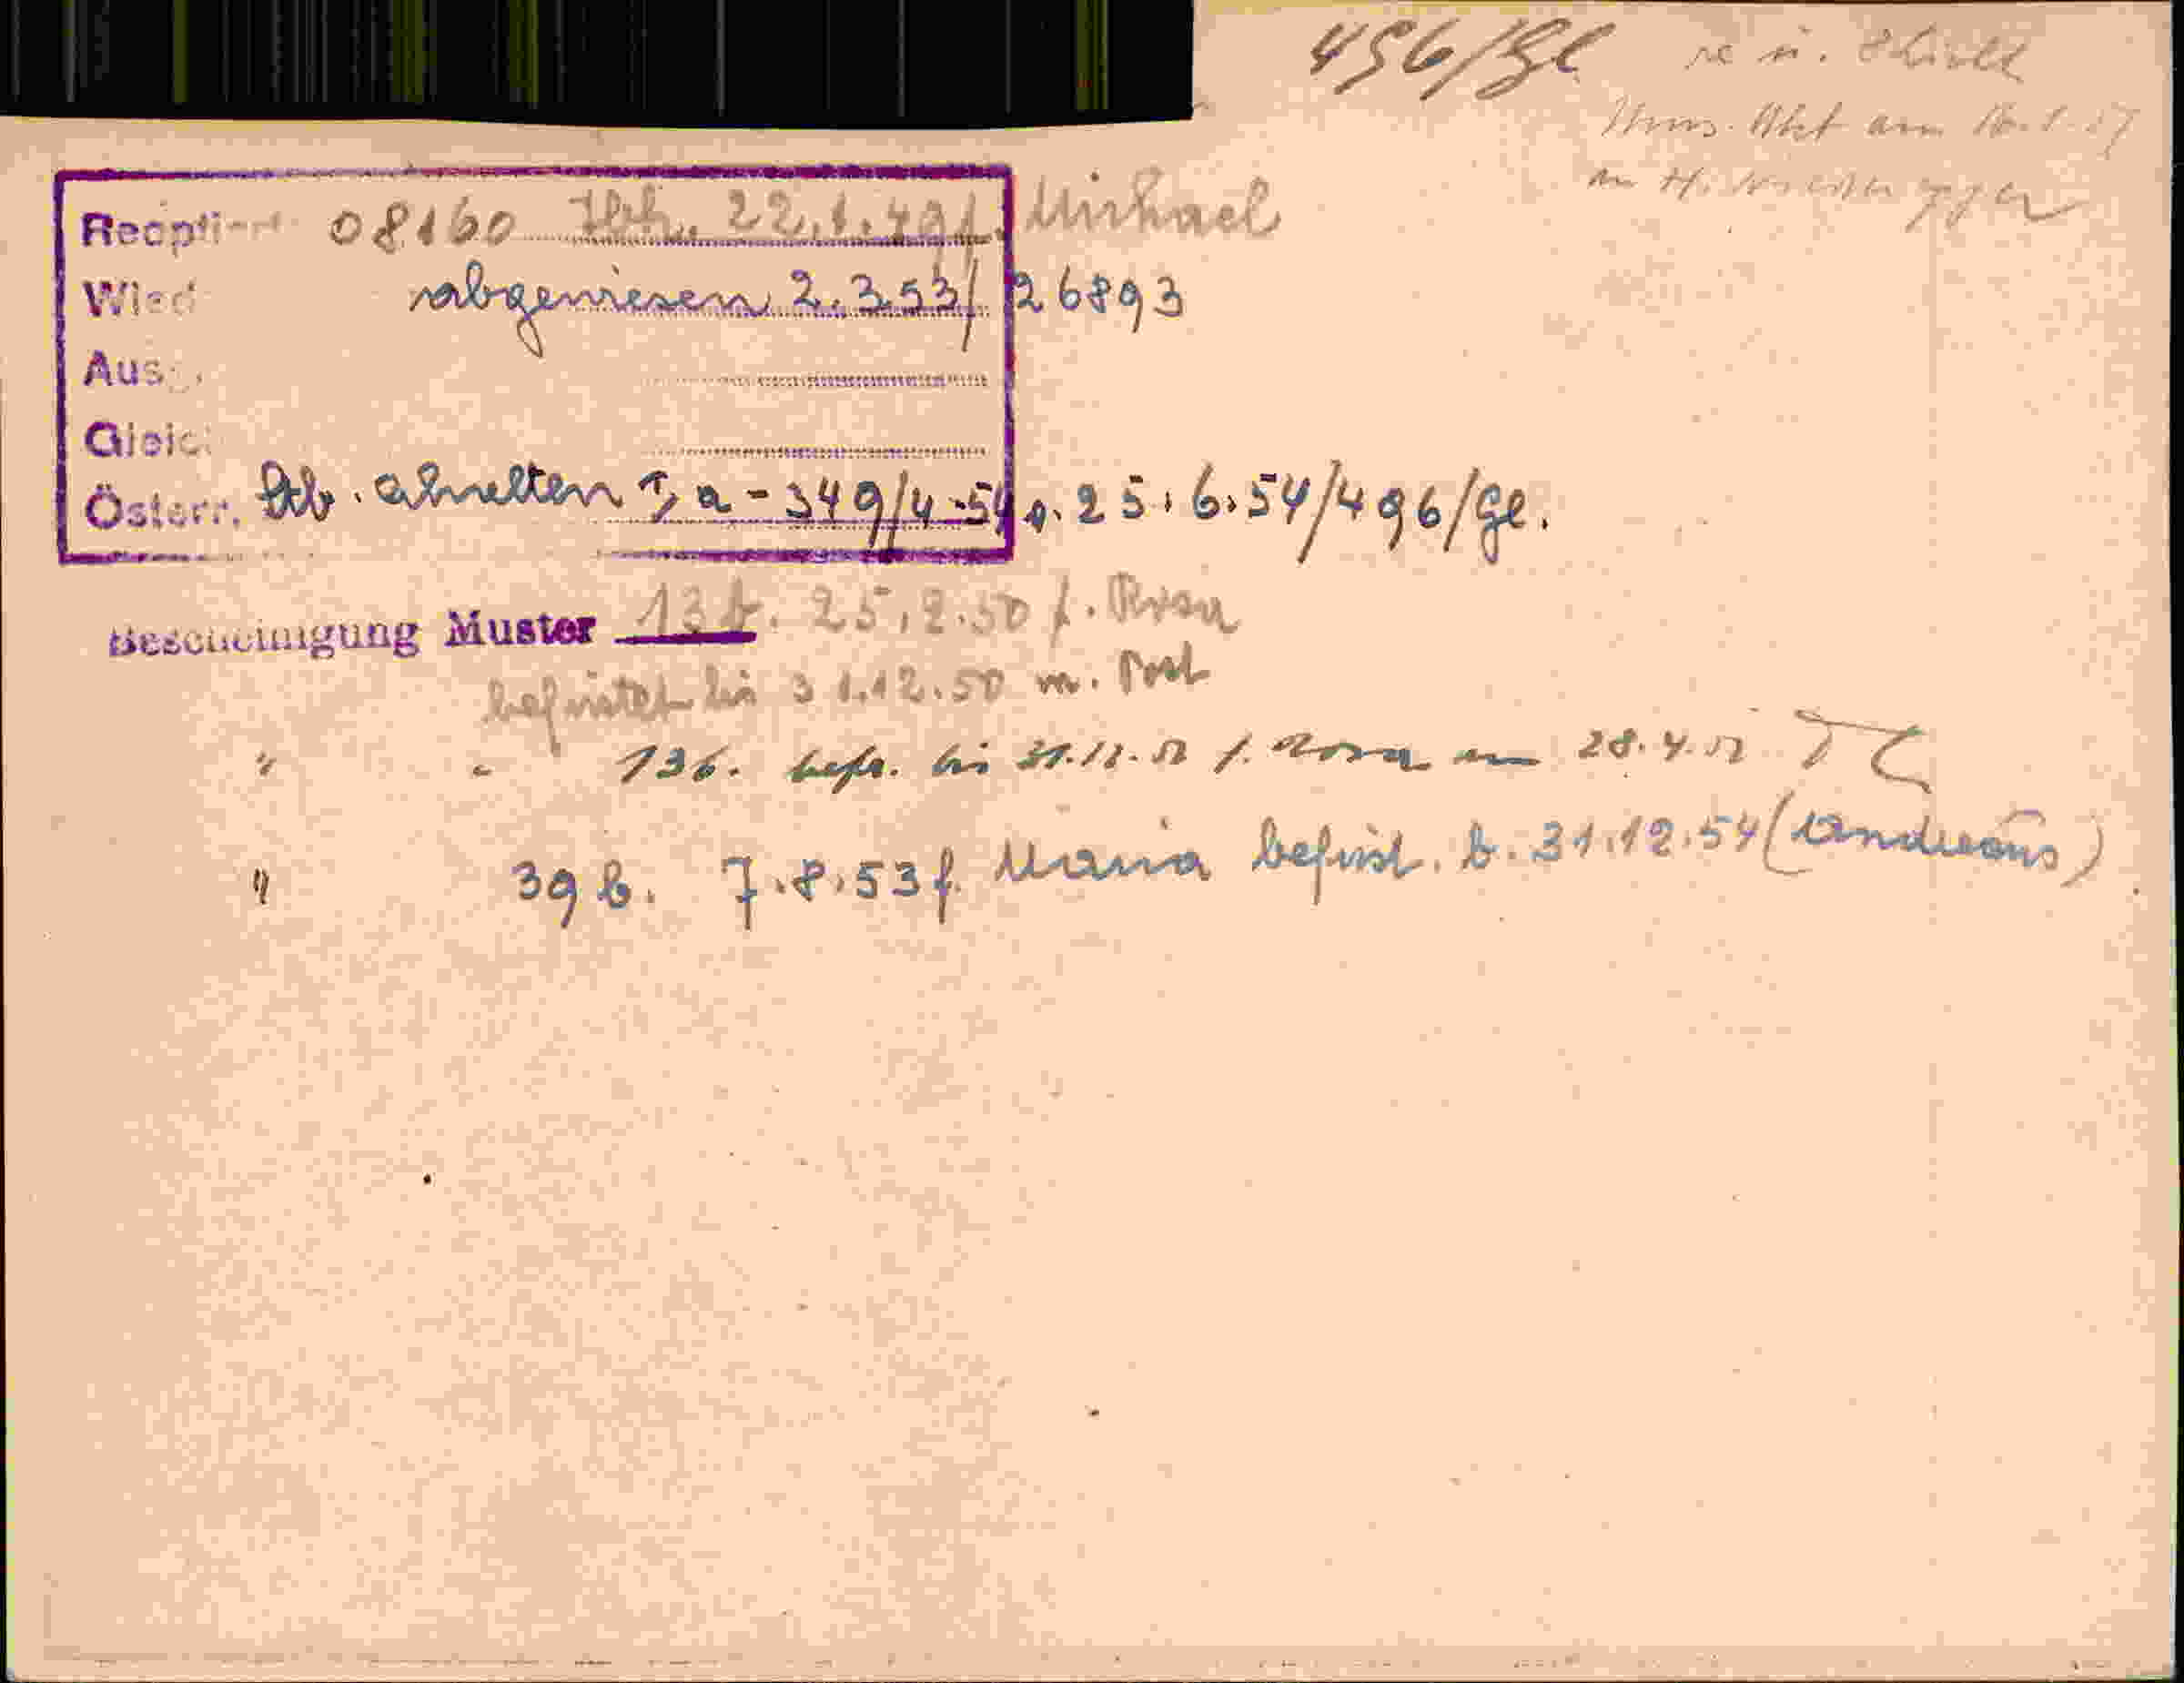 496/Gl
Akt am 16.1.57
an H.
Reoptiert 08160 22.1.49 f. Michael
Wied abgewiesen 2.3.53/ 26893
Ausg.
Gleic
Österr. erhalten I, a - 349/4-54 v. 25.6.54/496/Gl.
Bescheinigung Muster 13b. 25.2.50 f. Rosa
befristet bis 31.12.50 m. Post
" " 13b. befr. bis 31.12.52 f. Rosa am 28.4.52
" 39b. 7.8.53 f. Maria befrist. b. 31.12.54 (Andreaus)